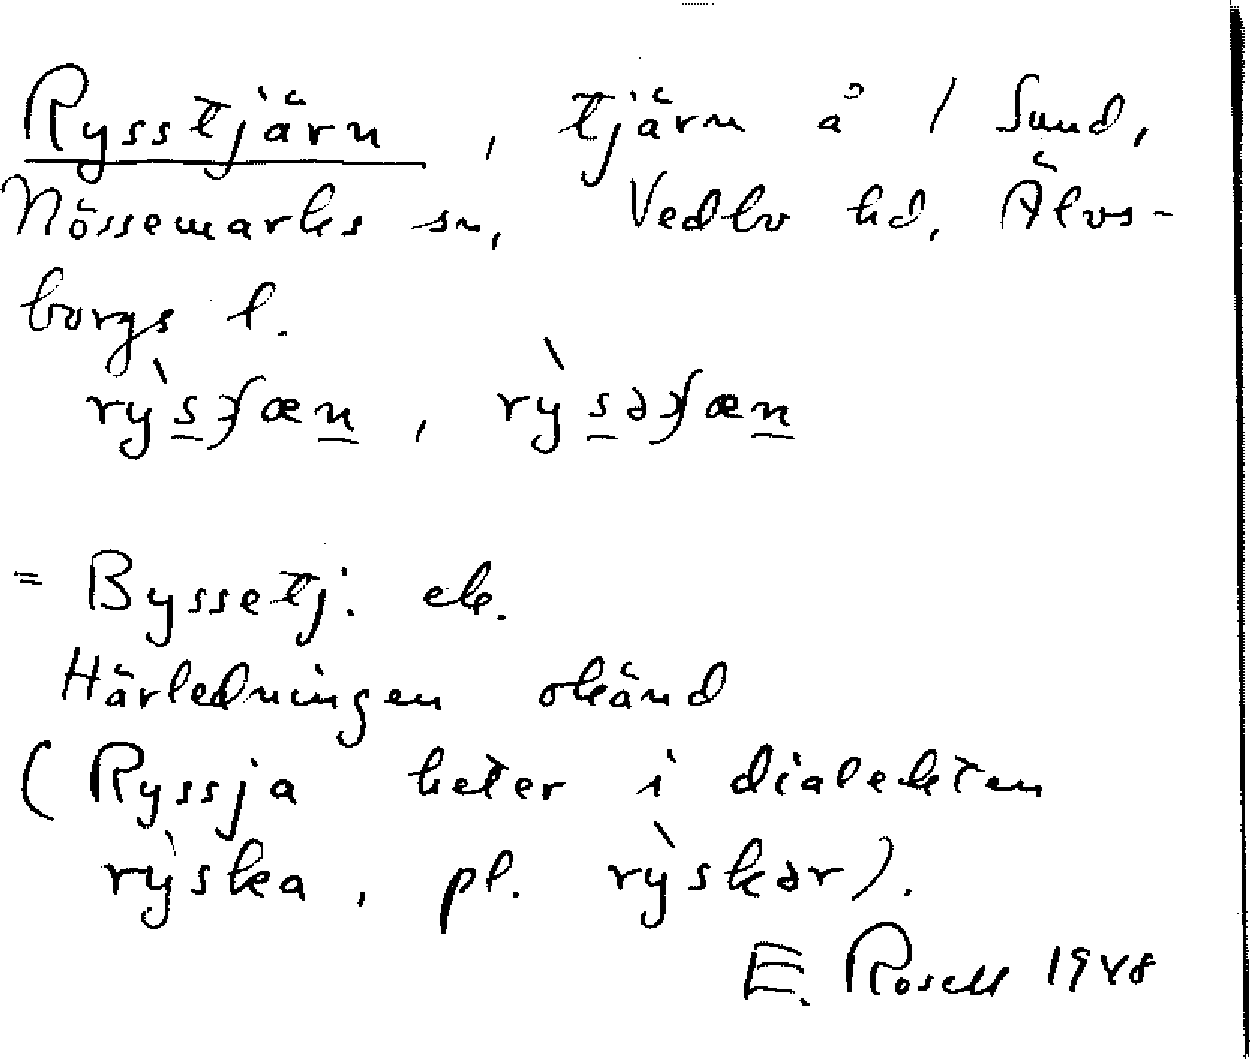 Rysstjärn, tjärn å / Sund,
Nössemarks sn, Vedbo hd, Älvs-
borgs l.
rỳsʒʃæn, rỳsəʒʃæn
= Byssetj: ek.
Härledningen okänd
(Ryssja heter i dialekten
rỳska, pl. rỳskər).
E. Rosell 1948